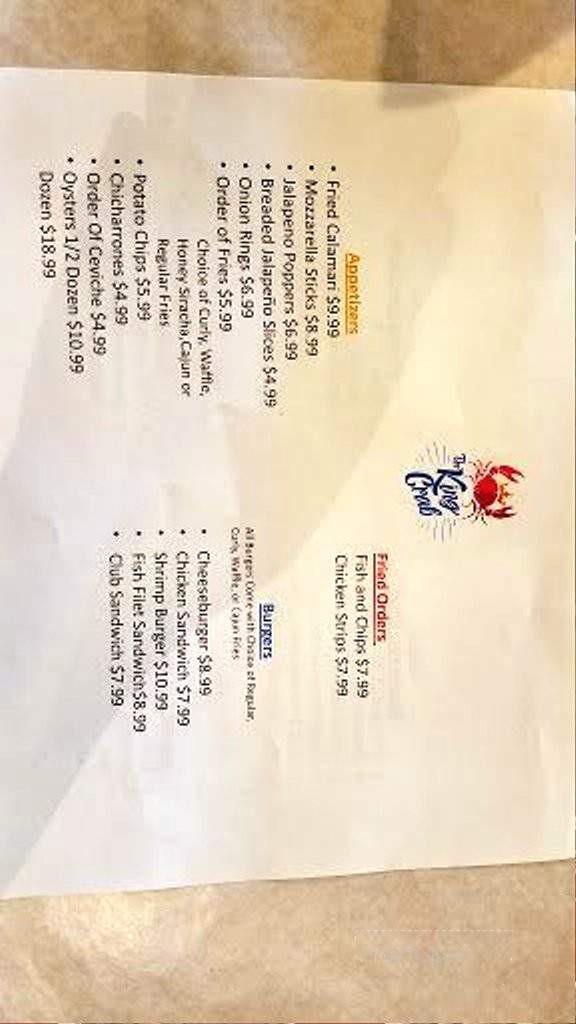 The
King
Crab
Appetizers
• Fried Calamari $9.99
• Mozzarella Sticks $8.99
• Jalapeno Poppers $6.99
• Breaded Jalapeño Slices $4.99
• Onion Rings $6.99
• Order of Fries $5.99
Choice of Curly, Waffle,
Honey Siracha,Cajun or
Regular Fries
• Potato Chips $5.99
• Chicharrones $4.99
• Order Of Ceviche $4.99
• Oysters 1/2 Dozen $10.99
Dozen $18.99
Fried Orders
Fish and Chips $7.99
Chicken Strips $7.99
Burgers
All Burgers Come with Choice of Regular,
Curly, Waffle, or Cajun Fries
• Cheeseburger $8.99
• Chicken Sandwich $7.99
• Shrimp Burger $10.99
• Fish Filet Sandwich$8.99
• Club Sandwich $7.99